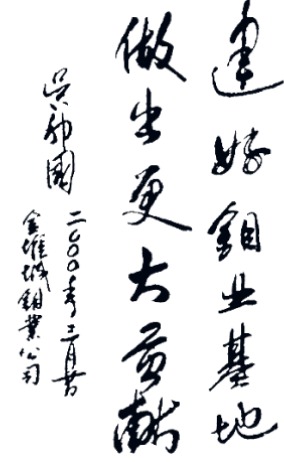 建好钼业基地
做出更大贡献
吴邦國
二〇〇〇年十一月廿
金堆城鉬業公司